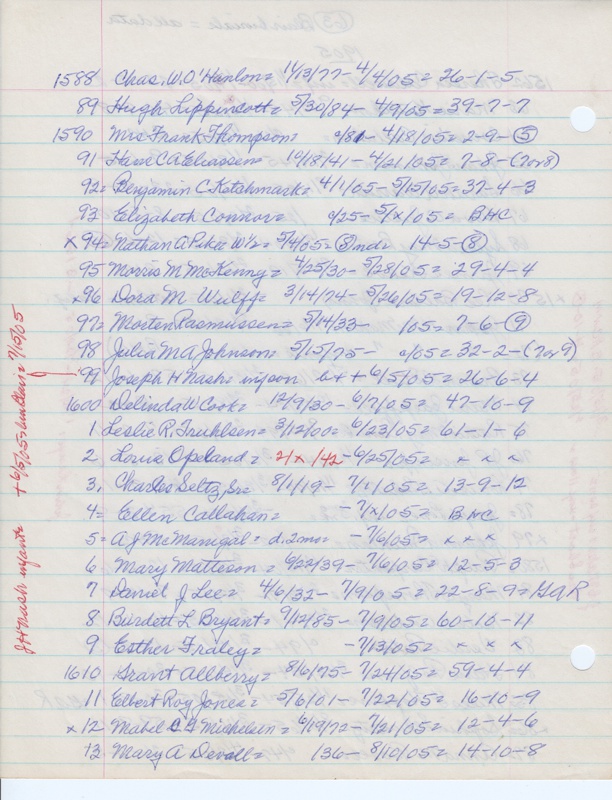 1588 Chas. W. O'Hanlon = 11/13/77 - 4/4/05 = 26-1-5
89 Hugh Lippincott = 5/30/84 - 4/9/05 = 39-7-7
1590 Mrs Frank Thompson = c/81 - 4/18/05 = 2-9-⑤
91 Hans C A Eliassen = 10/18/41 - 4/21/05 = 7-8-(7or8)
92 = Benjamin C Ketchmark = 4/1/05 - 5/15/05 = 37-4-3
93 Elizabeth Connor = c/25 - 5/x/05 = BHC
x 94 = Nathan A Pike = 5/4/05 = ⑧ 14-5-⑧
95 Morris M McKenny = 4/25/30 - 5/28/05 = 29-4-4
x 96 Dora M Wulff = 3/14/74 - 5/26/05 = 19-12-8
97 = Morten Rasmussen = 5/14/33 - /05 = 7-6-⑨
98 Julia M A Johnson = 5/15/75 - c/05 = 32-2-(7or9)
'99 Joseph H Nash = b + + 6/5/05 = 26-6-4
1600 Delinda W Cook = 12/9/30 - 6/7/05 = 47-10-9
1 Leslie R. Truhlsen = 3/12/00 = 6/23/05 = 61-1-6
2 Louie Opeland = 2/x/42 - 6/25/05 = x x x
3, Charles Seltz, Sr = 8/1/19 - 7/1/05 = 13-9-12
4 = Ellen Callahan = - 7/x/05 = BHC
5 = A J McManigal = d. 2 mos - 7/6/05 = x x x
6 Mary Matteson = 6/22/39 - 7/6/05 = 12-5-3
7 Daniel J Lee = 4/6/32 - 7/9/05 = 22-8-9 = GAR
8 Burdett L Bryant = 9/12/85 - 7/9/05 = 60-10-11
9 Esther Fraley = - 7/13/05 = x x x
1610 Grant Allberry = 8/6/75 - 7/24/05 = 59-4-4
11 Elbert Roy Jones = 5/6/01 - 7/22/05 = 16-10-9
x 12 Mabel C G Mickelsen = 6/19/72 - 7/21/05 = 12-4-6
13 Mary A Devall = 136 - 8/10/05 = 14-10-8
J H Nash infant = + 6/5/05 = 7/15/05